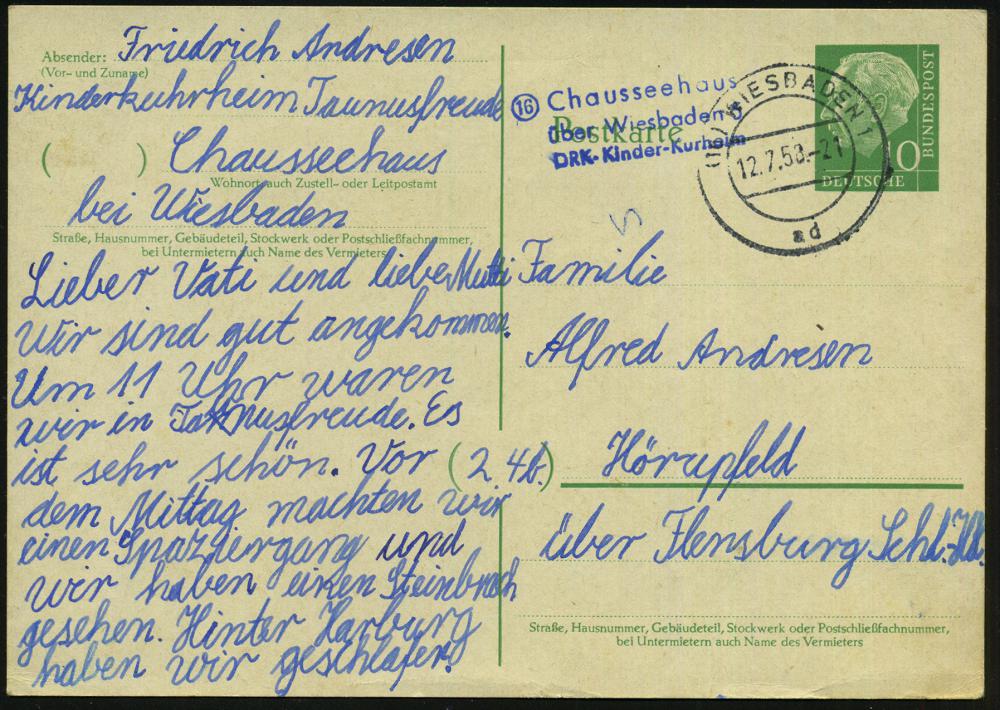 Absender: Friedrich Andresen
(Vor- und Zuname)
Kinderkuhrheim Taunusfreude
( ) Chausseehaus
Wohnort, auch Zustell- oder Leitpostamt
bei Wiesbaden
Straße, Hausnummer, Gebäudeteil, Stockwerk oder Postschließfachnummer,
bei Untermietern auch Name des Vermieters
Lieber Vati und liebe Mutti
Wir sind gut angekommen.
Um 11 Uhr waren
wir in Taunusfreude. Es
ist sehr schön. Vor
dem Mittag machten wir
einen Spaziergang und
wir haben einen Steinbruch
gesehen. Hinter Harburg
haben wir geschlafen.
16 Chausseehaus
über Wiesbaden 5
DRK-Kinder-Kurheim
Postkarte
WIESBADEN 1
12.7.58.-21
ad
BUNDESPOST
DEUTSCHE
10
5
Familie
Alfred Andresen
(24b) Hörupfeld
über Flensburg Schl.-Hol.
Straße, Hausnummer, Gebäudeteil, Stockwerk oder Postschließfachnummer,
bei Untermietern auch Name des Vermieters